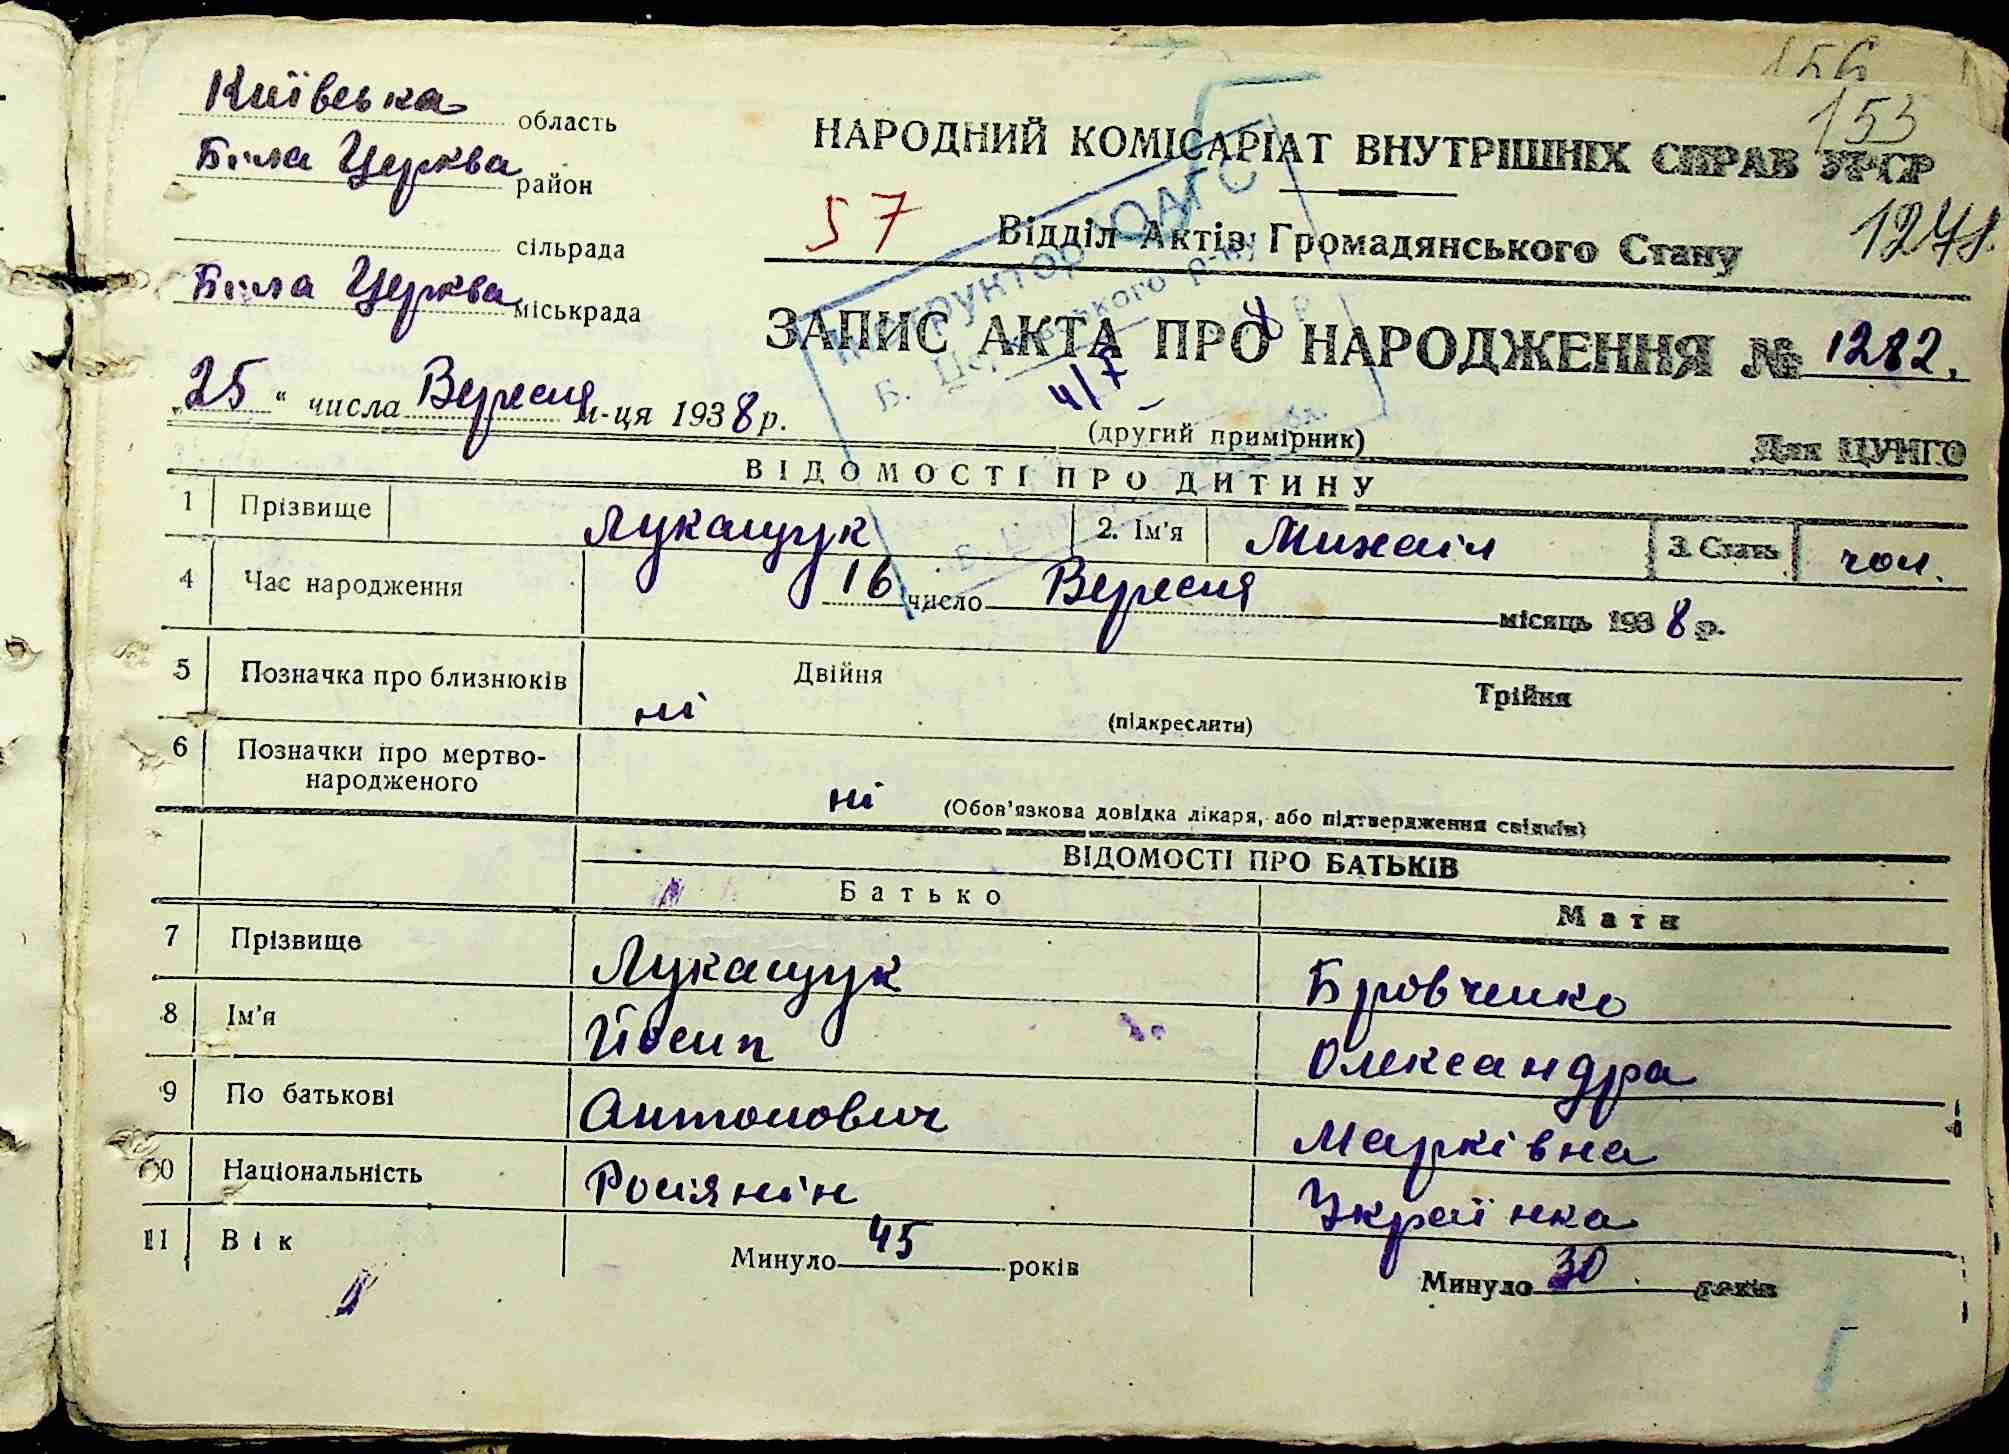 156
153
Київська область
Біла Церква район
сільрада
Біла Церква міськрада
НАРОДНИЙ КОМІСАРІАТ ВНУТРІШНІХ СПРАВ УРСР
57
Відділ Актів Громадянського Стану
ЗАПИС АКТА ПРО НАРОДЖЕННЯ № 1282.
„25“ числа Вересня м-ця 1938 р.
(другий примірник)
Для ЦУНГО
ВІДОМОСТІ ПРО ДИТИНУ
1 Прізвище Лукащук 2. Ім'я Михаіл 3. Стать чол.
4 Час народження 16 число Вересня місяць 1938 р.
5 Позначка про близнюків ні Двійня Трійня
(підкреслити)
6 Позначки про мертво-
народженого ні (Обов'язкова довідка лікаря, або підтвердження свідків)
ВІДОМОСТІ ПРО БАТЬКІВ
Батько Мати
7 Прізвище Лукащук Бровченко
8 Ім'я Йосип Олександра
9 По батькові Антонович Марківна
10 Національність Росіянін Українка
11 Вік Минуло 45 років Минуло 30 років